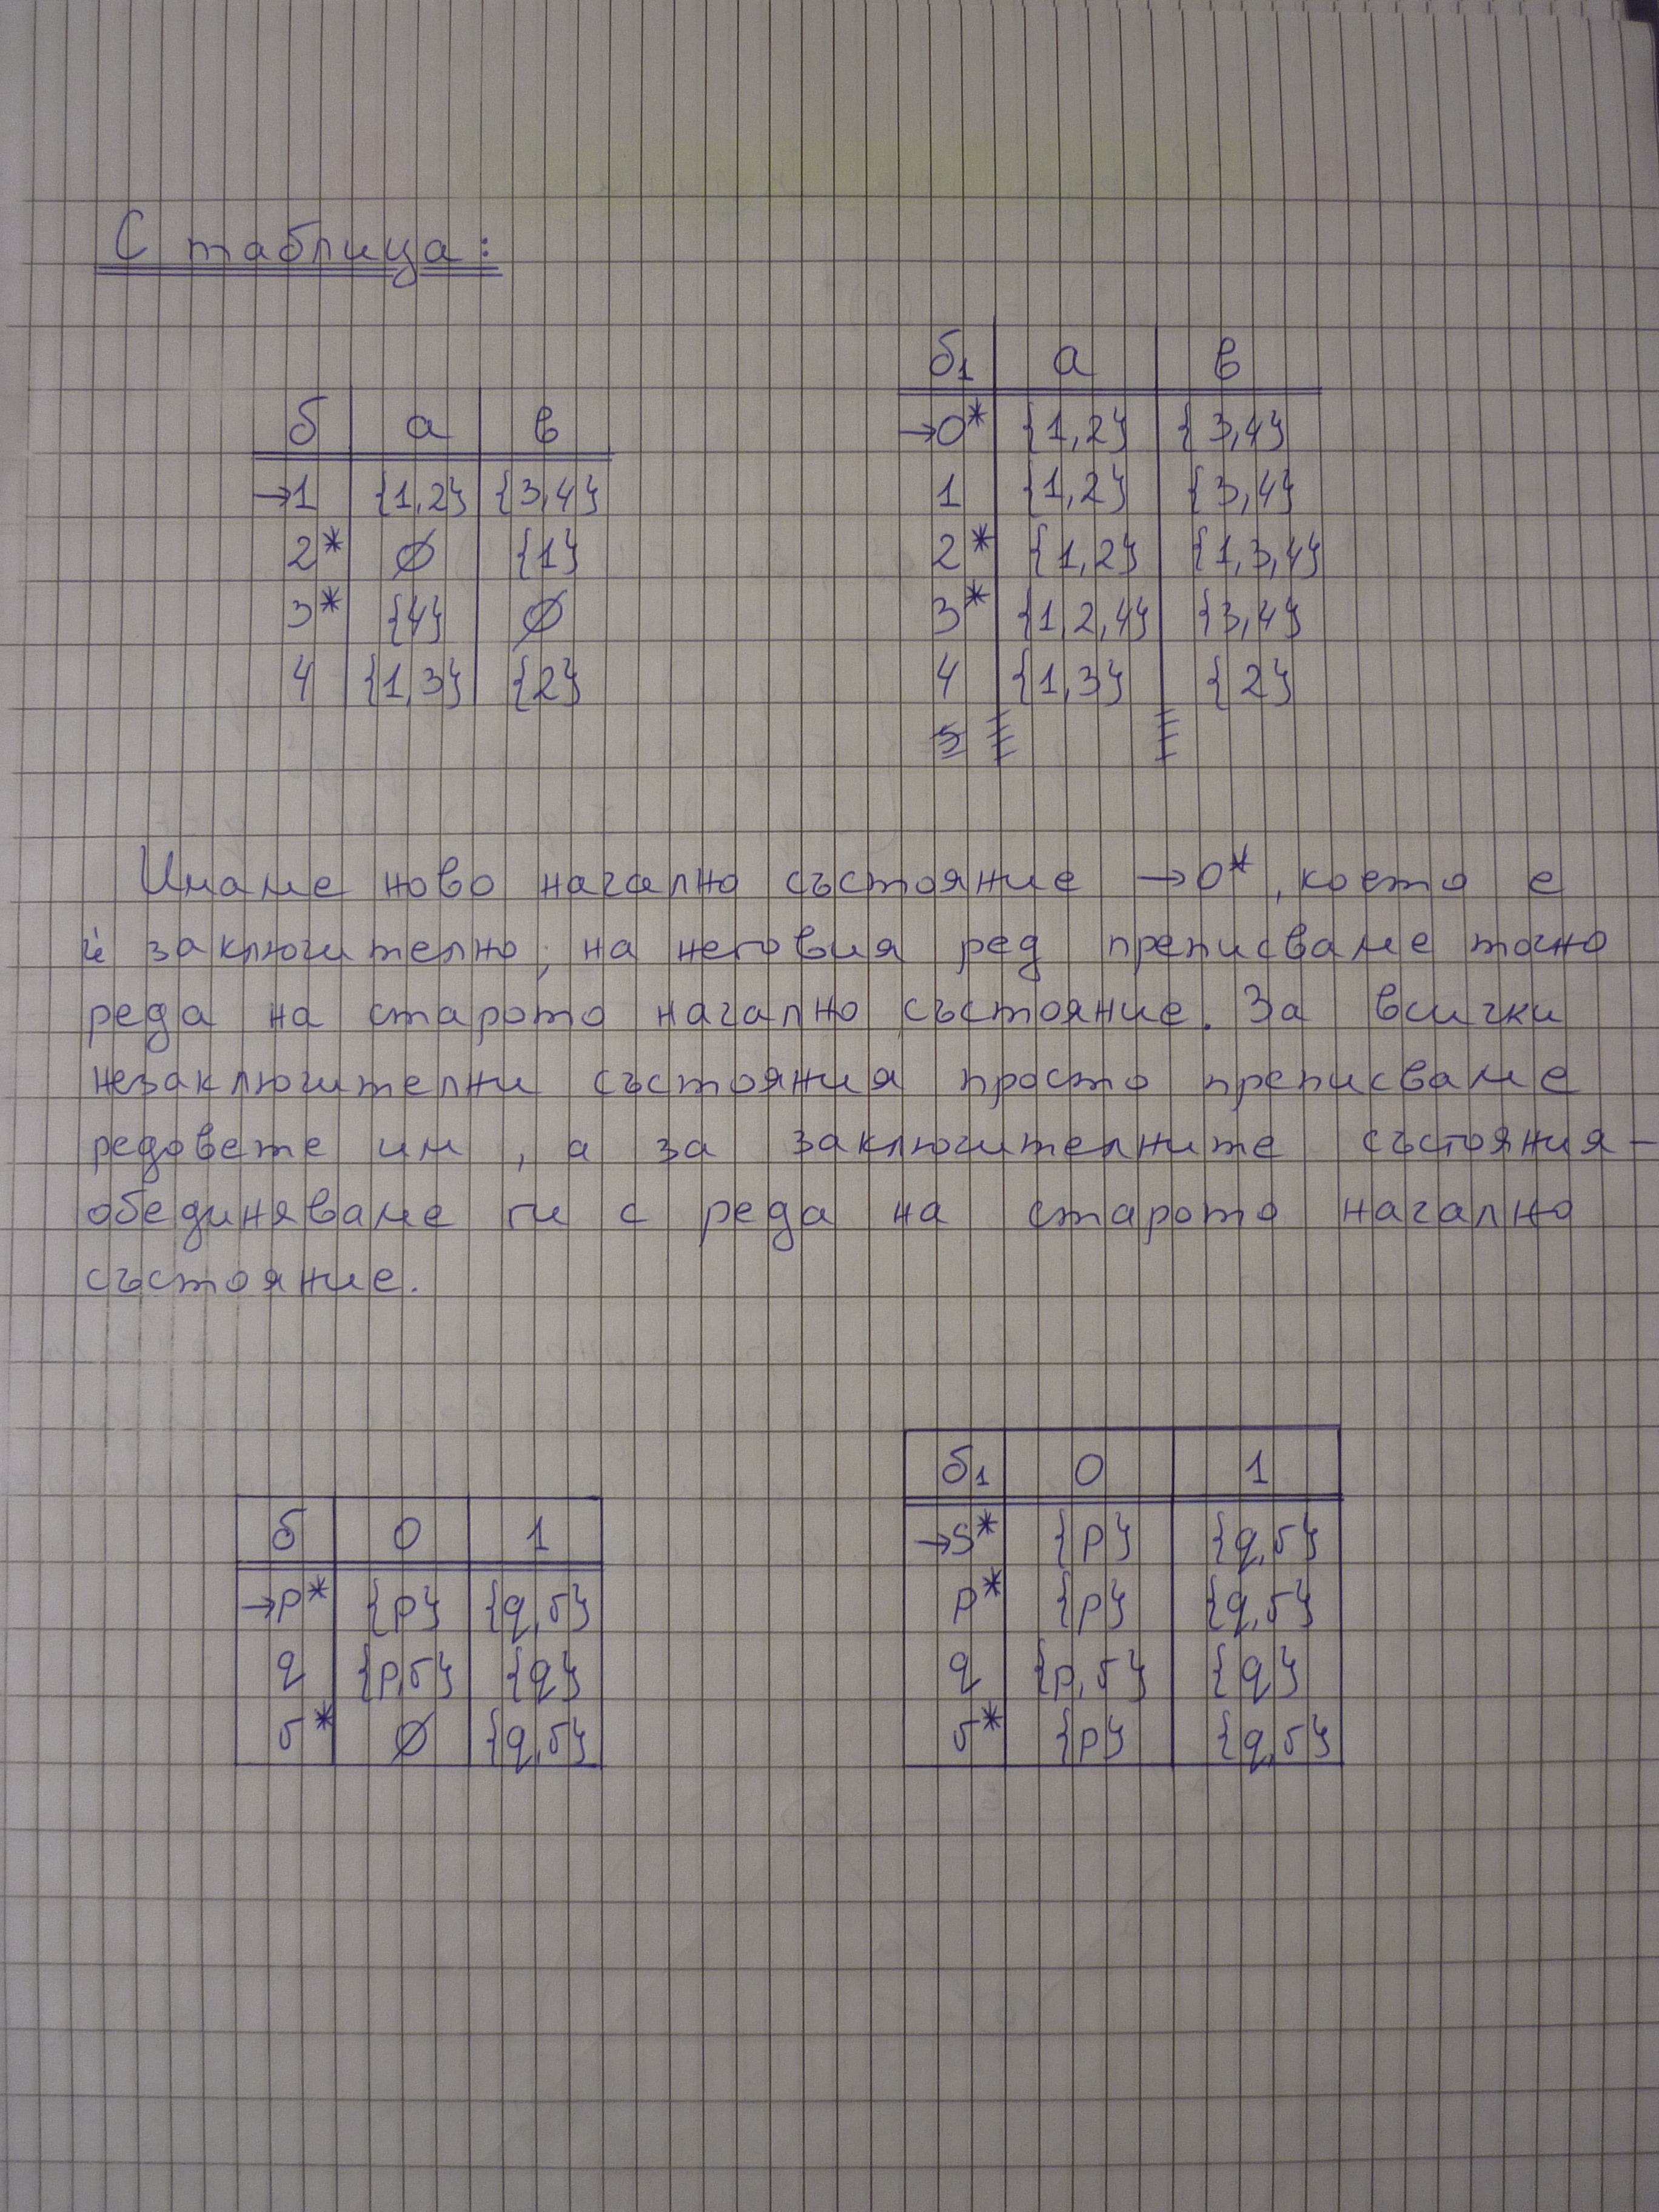 С таблица:
б | а | в
→1 | {1,2} | {3,4}
2* | ∅ | {1}
3* | {4} | ∅
4 | {1,3} | {2}
б₁ | а | в
→0* | {1,2} | {3,4}
1 | {1,2} | {3,4}
2* | {1,2} | {1,3,4}
3* | {1,2,4} | {3,4}
4 | {1,3} | {2}
Имаме ново начално състояние →0*, което е
и заключително; на неговия ред преписваме точно
реда на старото начално състояние. За всички
незаключителни състояния просто преписваме
редовете им, а за заключителните състояния –
обединяваме ги с реда на старото начално
състояние.
б | 0 | 1
→p* | {p} | {q,r}
q | {p,r} | {q}
r* | ∅ | {q,r}
б₁ | 0 | 1
→s* | {p} | {q,r}
p* | {p} | {q,r}
q | {p,r} | {q}
r* | {p} | {q,r}